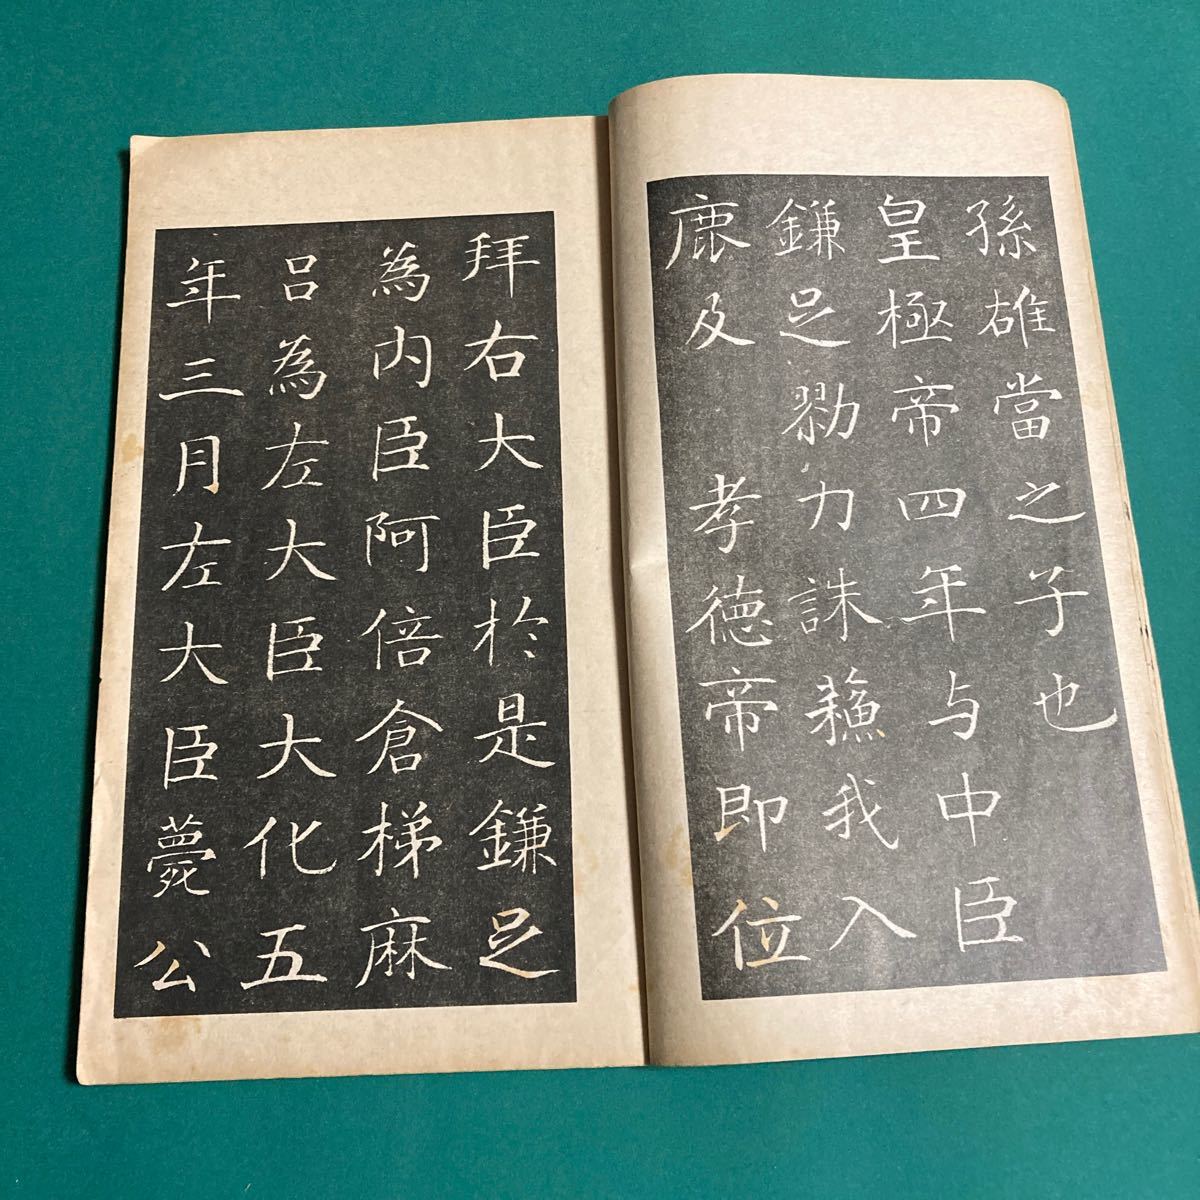 孫雄當之子也
皇極帝四年与中臣
鎌足勠力誅蘓我入
鹿及　孝德帝即位
拜右大臣於是鎌足
為内臣阿倍倉梯麻
吕為左大臣大化五
年三月左大臣薨公